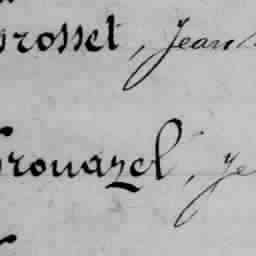 rosset, Jean
rouazel, Je